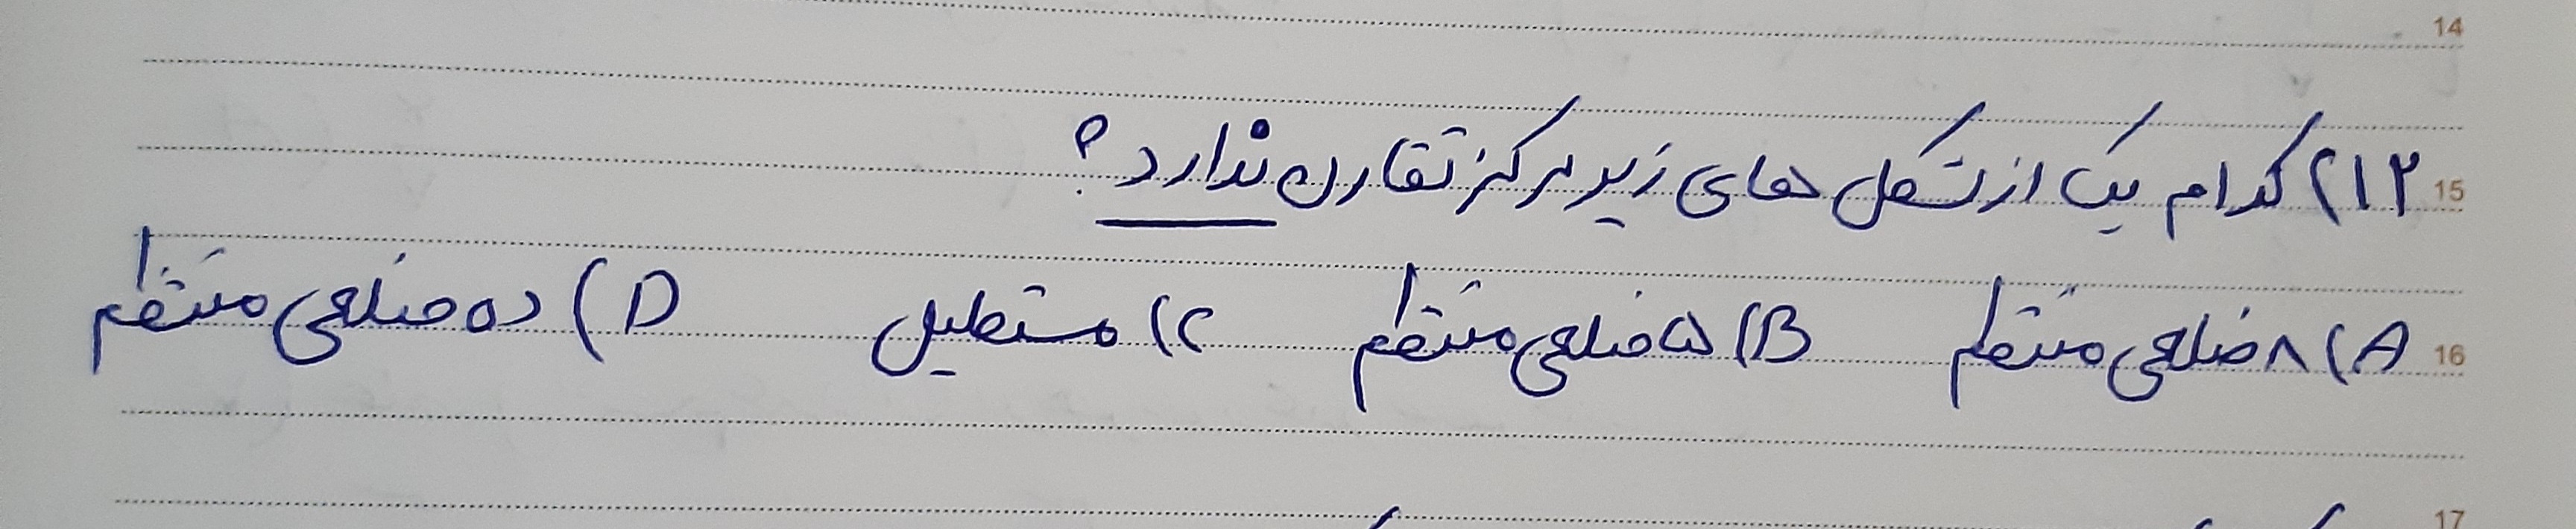 14
15 ۲۱۲) کدام یک از شکل های زیر مرکز تقارن ندارد؟
16 A) ۸ ضلعی منتظم B) ۵ ضلعی منتظم C) مستطیل D) ده ضلعی منتظم
17